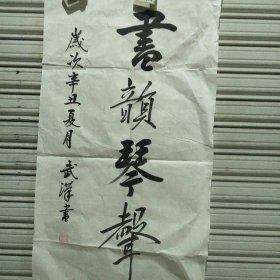 畫韻琴聲
歲次辛丑夏月 武洋書